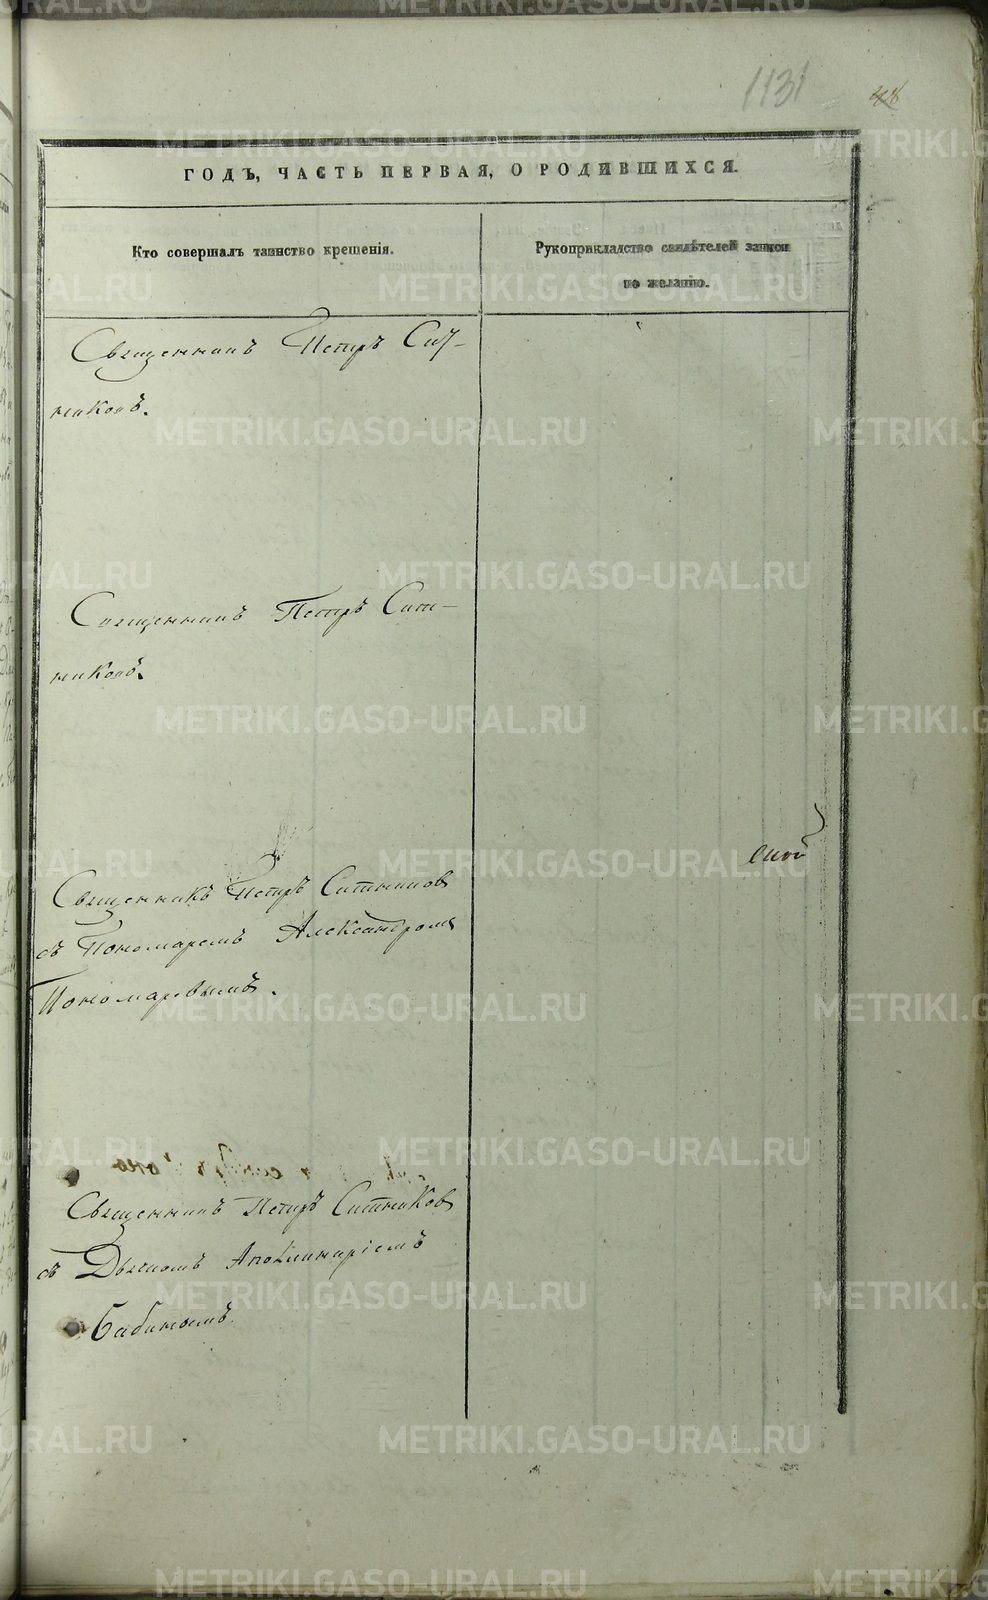 1131
ГОДЪ, ЧАСТЬ ПЕРВАЯ, О РОДИВШИХСЯ.
Кто совершалъ таинство крещенія.
Рукоприкладство свидѣтелей записи
по желанію.
Священникъ Петръ Сит-
никовъ.
Священникъ Петръ Сит-
никовъ.
ской
Священникъ Петръ Ситников
съ Пономаремъ Александромъ
Пономаревымъ.
Священникъ Петръ Ситников
съ Дьячкомъ Аполинаріемъ
Бабинымъ.
METRIKI.GASO-URAL.RU